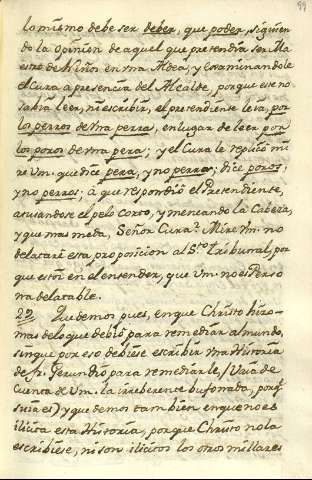 99
lo mismo debe ser deber, que poder, siguien
do la opinion de aquel que pretendia ser Ma
estro de Niños en una Aldea, y examinandole
el Cura a presencia del Alcalde, porque ese no
sabia leer, ni escribir, el pretendiente leia, por
los perros de una perra, en lugar de leer por
los poros de una pera; y el Cura le replicó mi
re Vm. que dice pera, y no perra; dice poros,
y no perros: á que respondió el Pretendiente,
atusandose el pelo corto, y meneando la Cabeza,
y que mas me da, Señor Cura? Mire Vm. no
delataré esta proposicion al Sto. tribunal, por
que estoy en el entender, que Vm. no es Perso
na delatable.
29. Quedemos pues, en que Christo hizo
mas de lo que debió para remediar al mundo,
sin que por eso debiese escribir una Historia
de Fr. Gerundio para remediarle, (Vaia de
cuenta de Vm. la irreberente bufonada, porq.
suia es) y quedemos tambien en que no es
ilicita esta Historia, porque Christo no la
escribiese, ni son ilicitos los otros millares